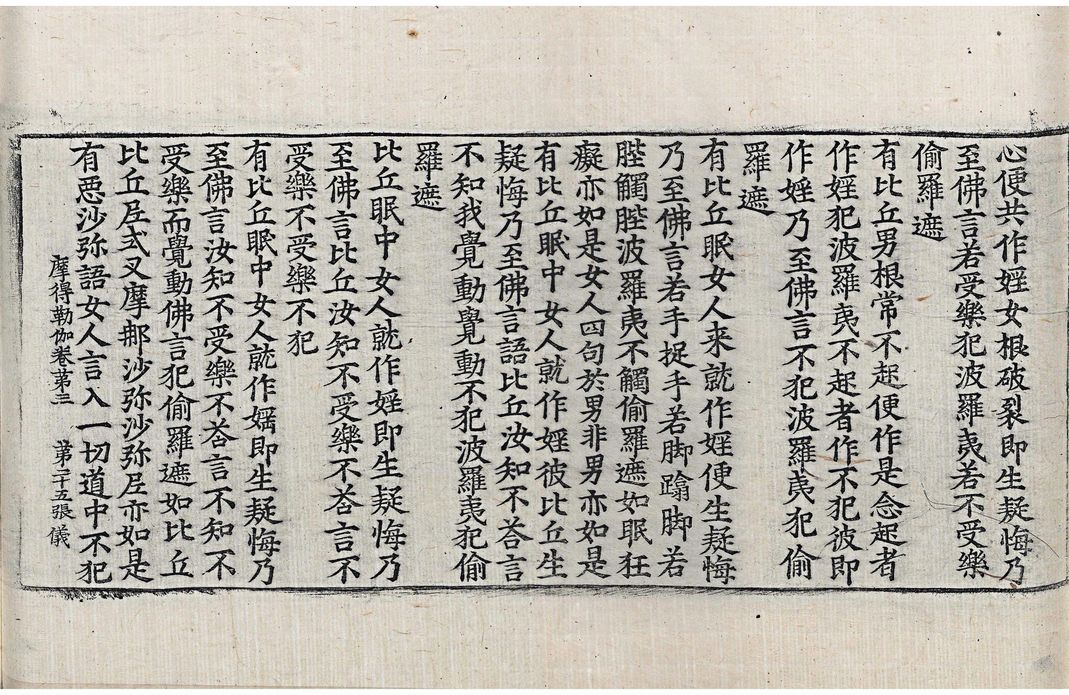 心便共作婬女根破裂即生疑悔乃
至佛言若受樂犯波羅夷若不受樂
偷羅遮
有比丘男根常不起便作是念起者
作婬犯波羅夷不起者作不犯彼即
作婬乃至佛言不犯波羅夷犯偷
羅遮
有比丘眠女人来就作婬便生疑悔
乃至佛言若手捉手若脚蹹脚若
䏶觸䏶波羅夷不觸偷羅遮如眠狂
癡亦如是女人四句於男非男亦如是
有比丘眠中女人就作婬彼比丘生
疑悔乃至佛言語比丘汝知不荅言
不知我覺動覺動不犯波羅夷犯偷
羅遮
比丘眠中女人就作婬即生疑悔乃
至佛言比丘汝知不受樂不荅言不
受樂不受樂不犯
有比丘眠中女人就作婬即生疑悔乃
至佛言汝知不受樂不荅言不知不
受樂而覺動佛言犯偷羅遮如比丘
比丘尼式叉摩郍沙弥沙弥尼亦如是
有惡沙弥語女人言入一切道中不犯
摩得勒伽卷第三 第二十五張 儀